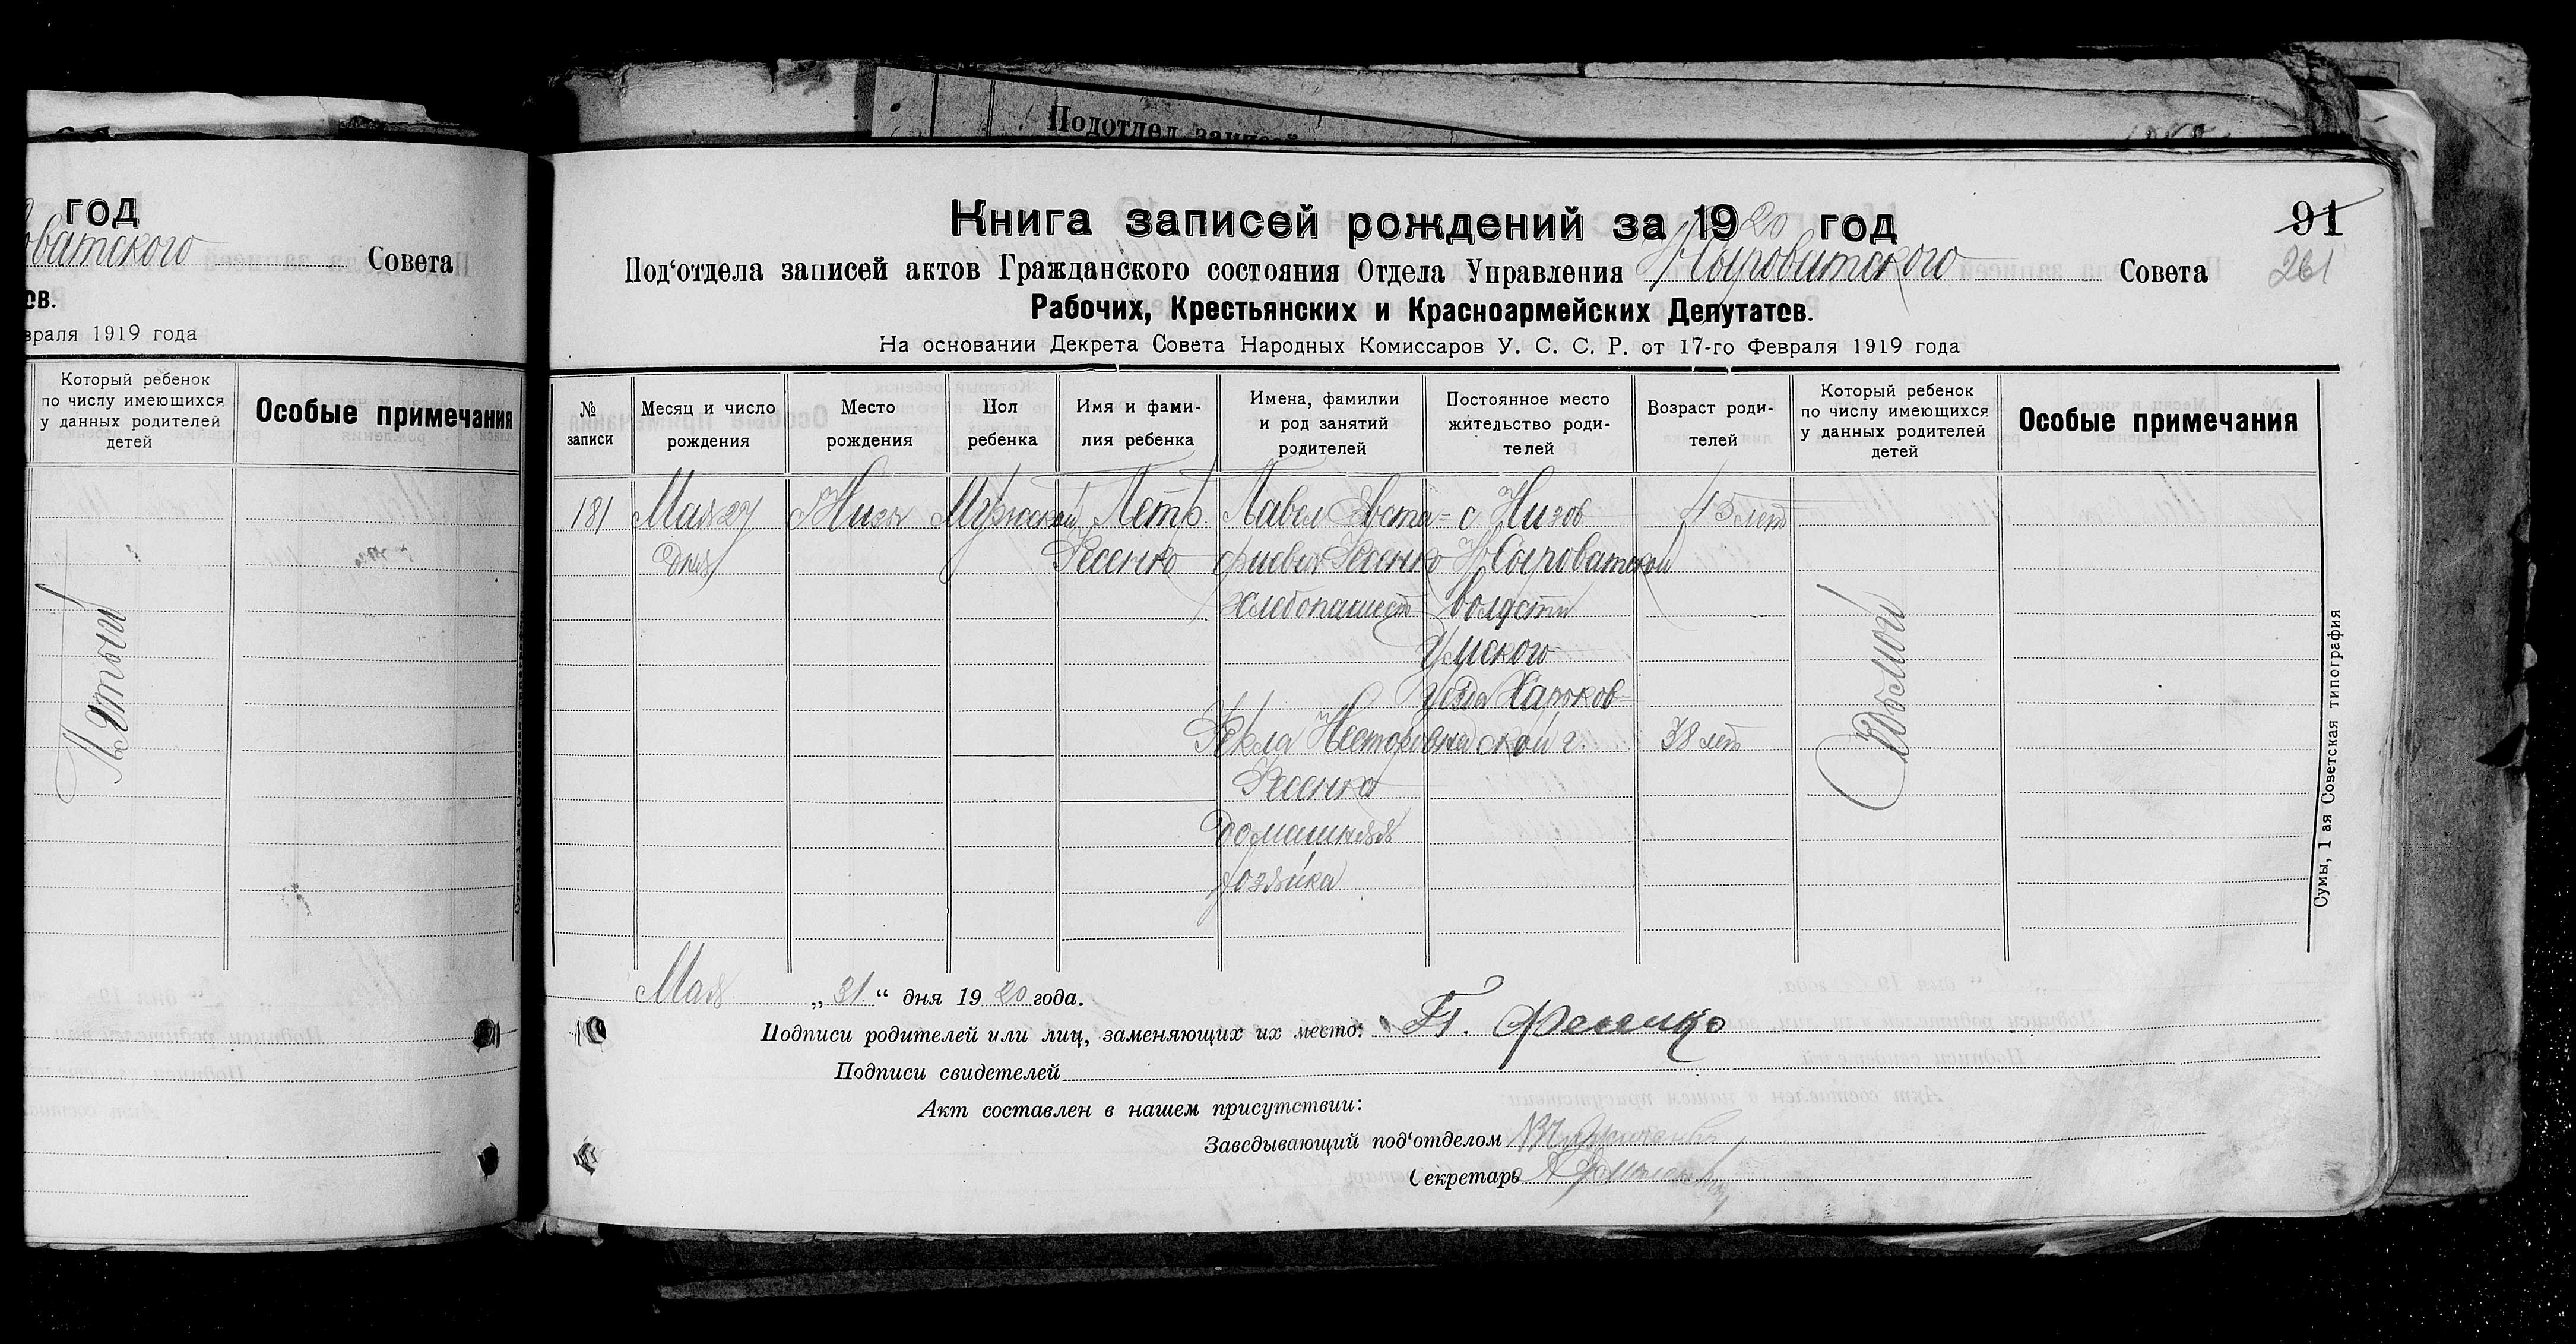 Подотдел
год
оватского Совета
ов.
враля 1919 года
Который ребенок
по числу имеющихся
у данных родителей
детей
Особые примечания
Пятый
91
261
Книга записей рождений за 1920 год
Под'отдела записей актов Гражданского состояния Отдела Управления Н Сыроватского Совета
Рабочих, Крестьянских и Красноармейских Депутатов.
На основании Декрета Совета Народных Комиссаров У. С. С. Р. от 17-го Февраля 1919 года
№
записи
Месяц и число
рождения
Место
рождения
Пол
ребенка
Имя и фами-
лия ребенка
Имена, фамилии
и род занятий
родителей
Постоянное место
жительство роди-
телей
Возраст роди-
телей
Который ребенок
по числу имеющихся
у данных родителей
детей
Особые примечания
181
Мая 27
дня
Низы
Мужской
Петр
Фесенко
Павел Евста=
фиевич Фесенко
хлебопашест
Фекла Несторовна
Фесенко
домашняя
хозяйка
с Низов
Н Сыроватской
волости
Сумского
уезда Харьков=
ской г.
45 лет
38 лет
Седьмой
Мая „31“ дня 1920 года.
Подписи родителей или лиц, заменяющих их место: П. Фесенко
Подписи свидетелей
Акт составлен в нашем присутствии:
Заведывающий под'отделом
Секретарь
Сумы, 1 ая Советская типография